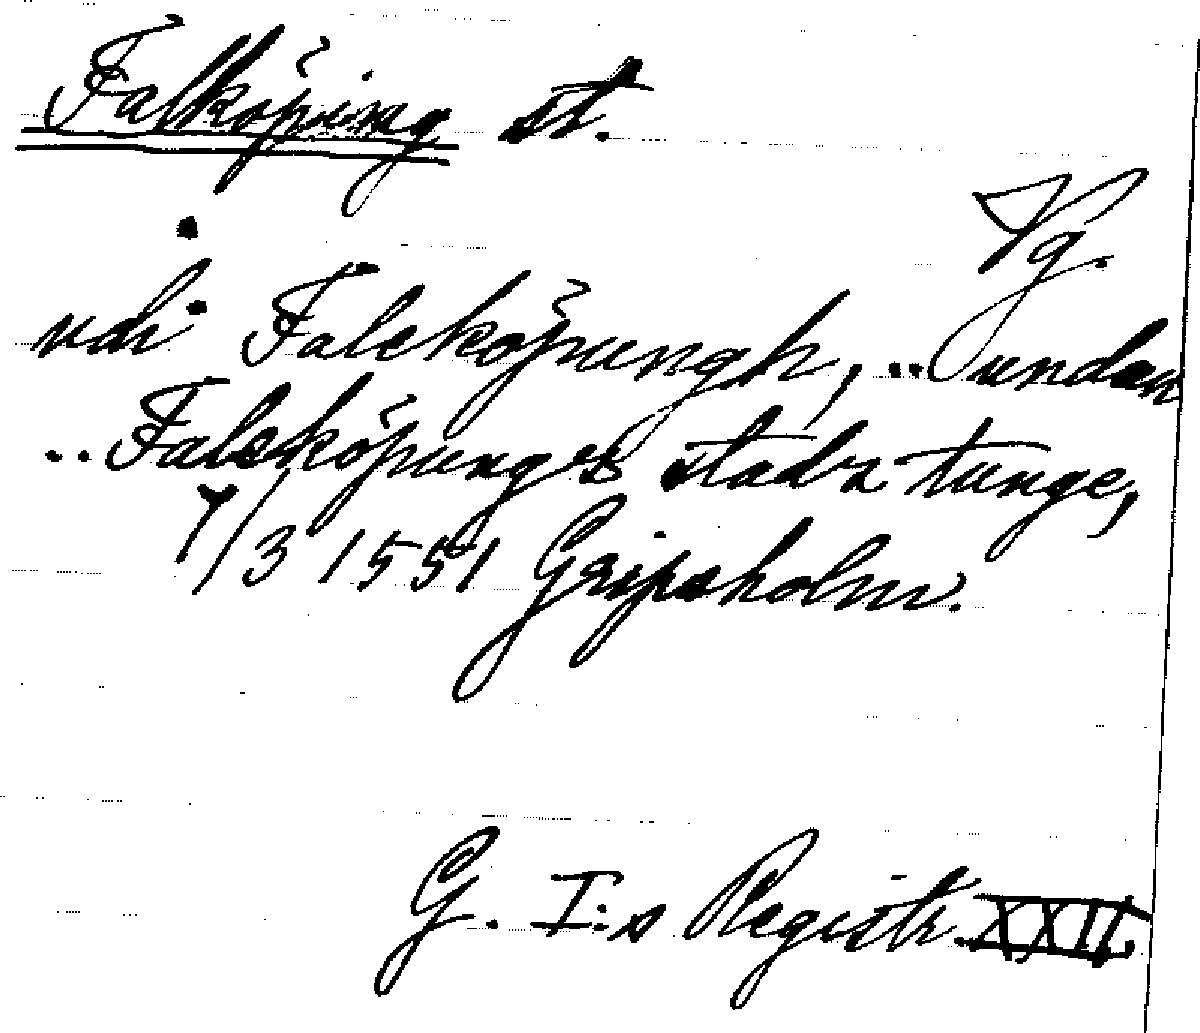 Falköping st.
Vg.
vdi Faleköpungh, .. undan
.. Faleköpungx stadz tunge,
7/3 1551 Gripsholm.
G. I:s Registr. XXII.